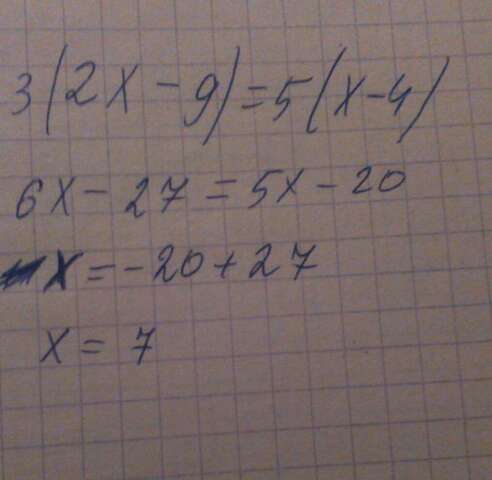 3(2x-9)=5(x-4)
6x-27=5x-20
x=-20+27
x=7